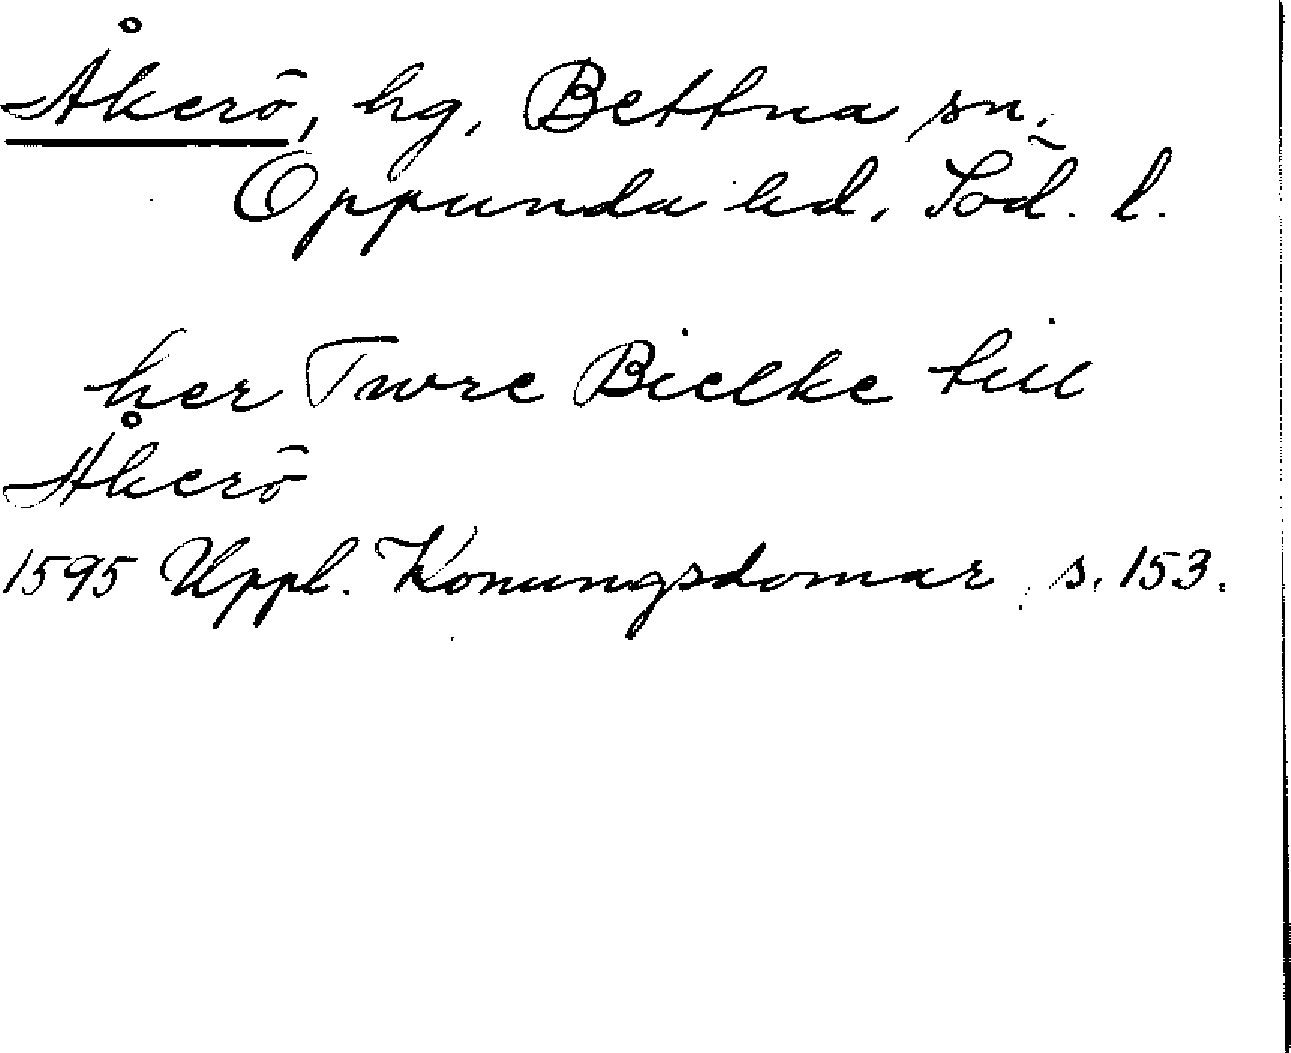 Åkerö, hg, Bettna sn.
Oppunda hd, Söd. l.
her Twre Bielke till
Åkerö
1595 Uppl. Konungsdomar s. 153.